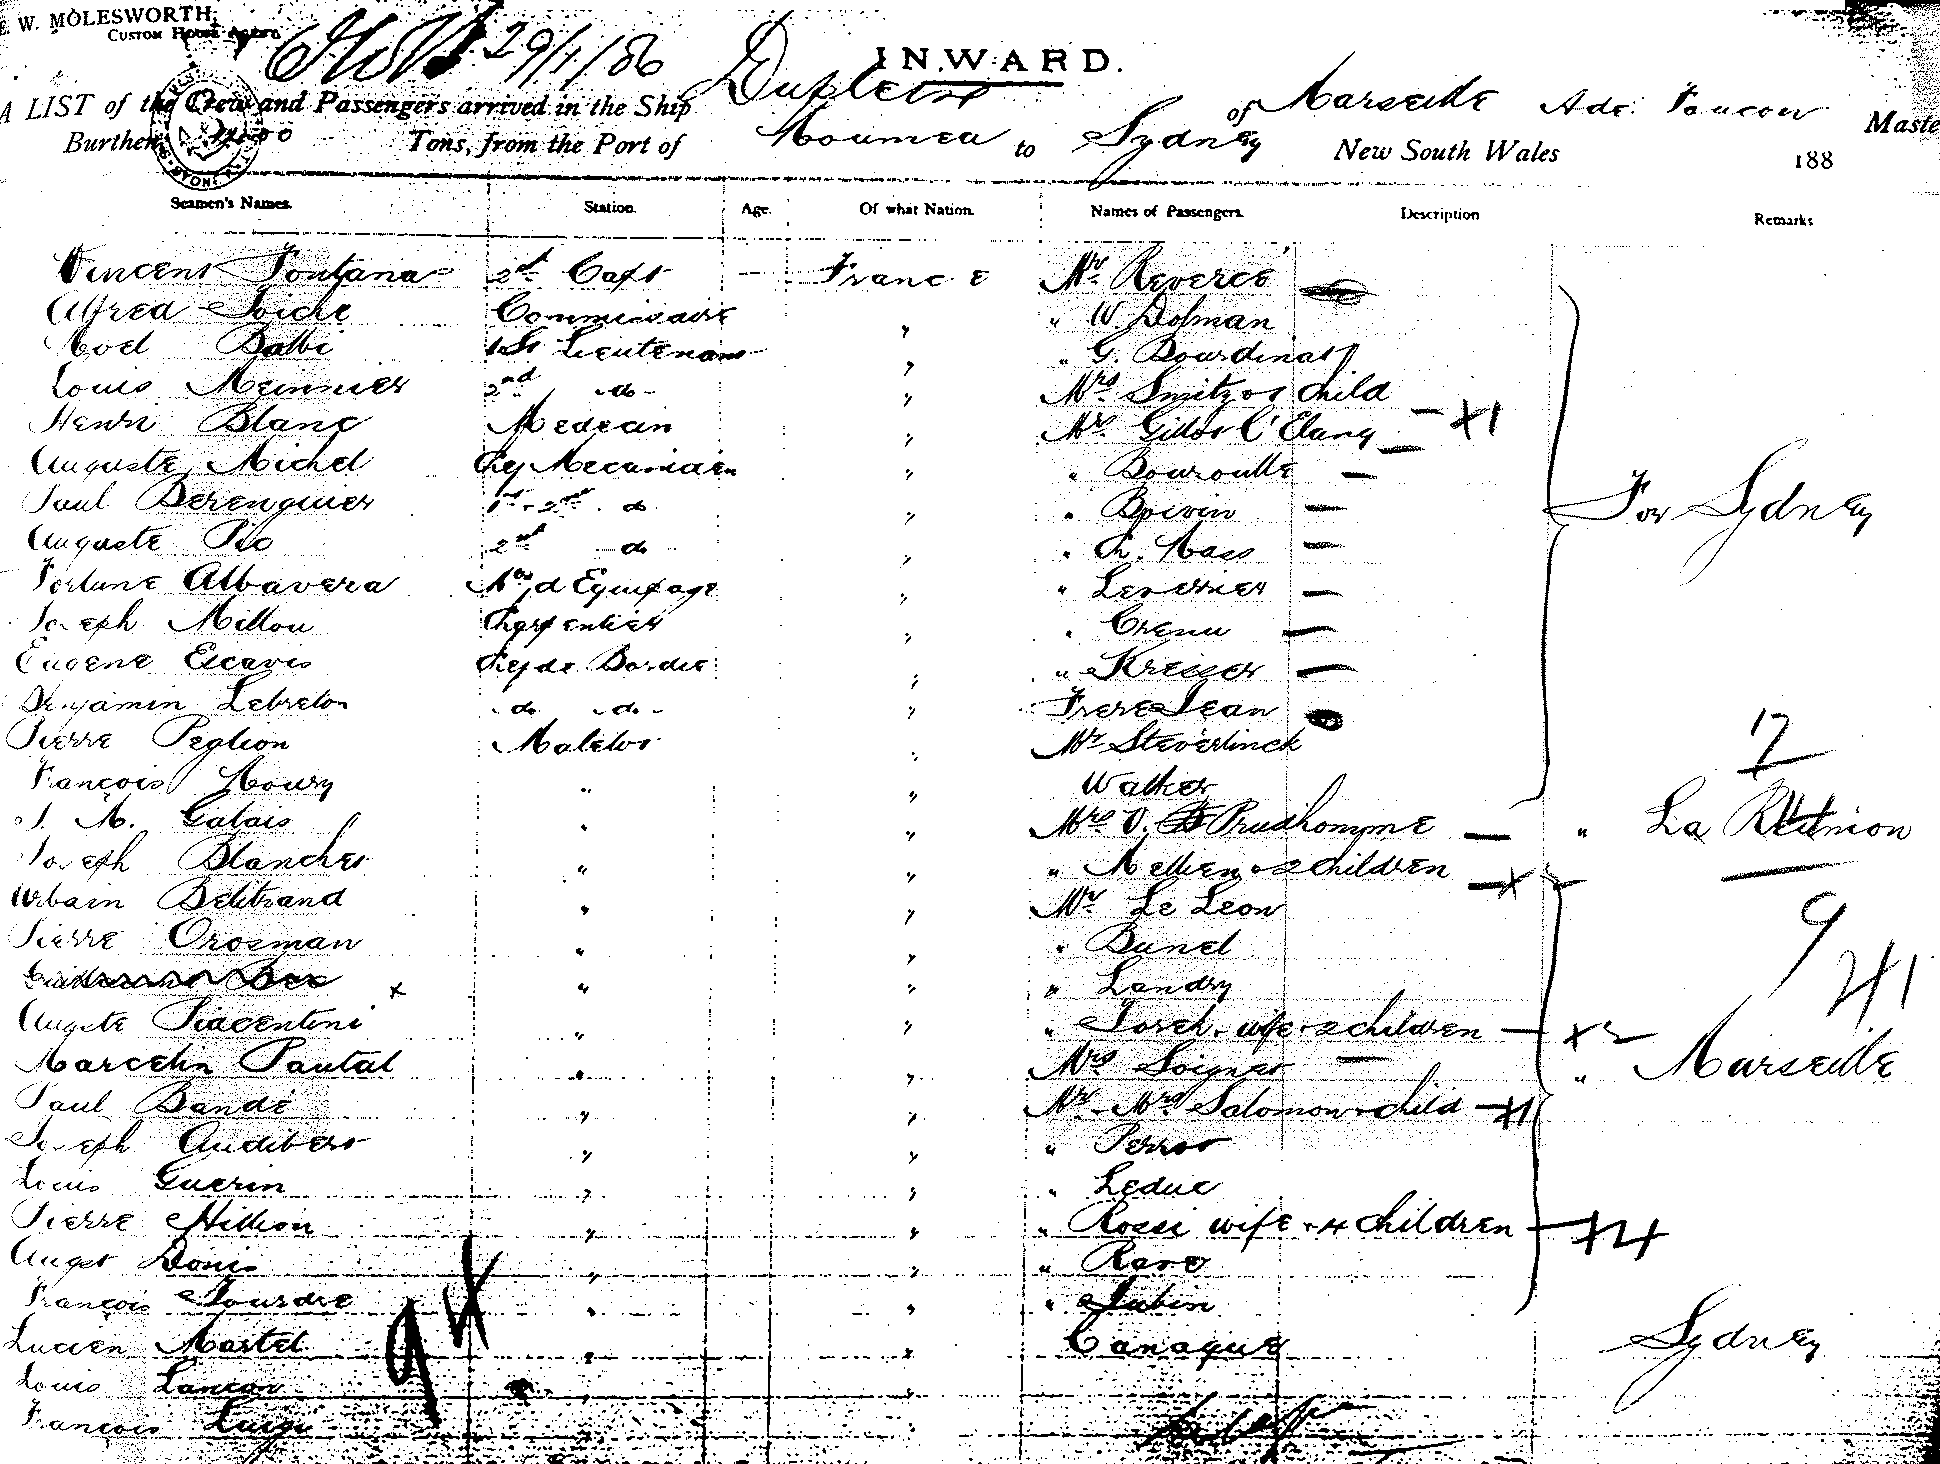 E. W. MOLESWORTH,
CUSTOM HOUSE AGENT.
29/1/86
INWARD.
A LIST of the Crew and Passengers arrived in the Ship Dupleix of Marseille Ade. Faucon Maste
Burthen Tons, from the Port of Noumea to Sydney New South Wales 188
Seamen's Names. Station. Age. Of what Nation. Names of Passengers. Description Remarks
Vincent Fontana 2d Capt — France Mr Revercé
Alfred Commissaire " " W. Dolman
Noel Balbi 1st Lieutenant " " G. Bourdinat
Louis Meinnier 2nd -do- " Mrs Smitz & 1 child
Henri Blanc Medecin " Mr. Gillot L'Etang — X1
Auguste Michel Chef Mecanicien " " Bouroulle —
Paul Berenguier 1st - 2nd do " " Boivin —
Auguste Pio 2nd -do- " " Ch. Nass —
Fortune Albavera Me d'Equipage " " Leverrier —
Joseph Millou Charpentier " " Crenu —
Eugene Escavis Chef de Bordée " " Kresser — For Sydney
Benjamin Lebreton -do -do- " Frere Jean
Pierre Peglion Matelot " Mr Steverlinck
François Noury " " Walker 17
J. M. Galais " " Mrs O. Prudhomme — " La Réunion
Joseph Blanchet " " " Mellien & 2 children — X 2
Urbain Beltrand " " Mr Le Leon 9
Pierre Orosman " " " Bunel 41
x " " " Landry
Auguste Piacentini " " " Joseh. wife & 2 children — X 2
Marcelin Pautal " " Mrs Soignot — " Marseille
Paul Bandé " " Mr. Mrs Salomon & child — X1
Joseph Audibert " " " Perrot
Louis Guerin " " " Leduc
Pierre Hillion " " " Rossi wife & 4 children — X4
August Donis " " " Rave
François Jourdre " " " Jubin
Lucien Martel " " Canaque Sydney
94
Louis Lancar " "
François Luigi " "